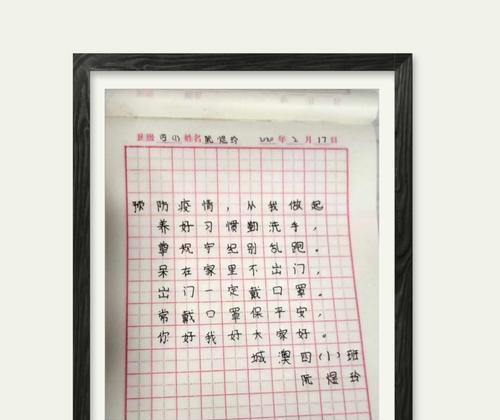 班级 四(1) 姓名 阮煜玲 2020年2月17日
预防疫情，从我做起
养好习惯勤洗手，
尊规守纪别乱跑。
呆在家里不出门，
出门一定戴口罩。
常戴口罩保平安，
你好我好大家好。
城澳四(1)班
阮煜玲